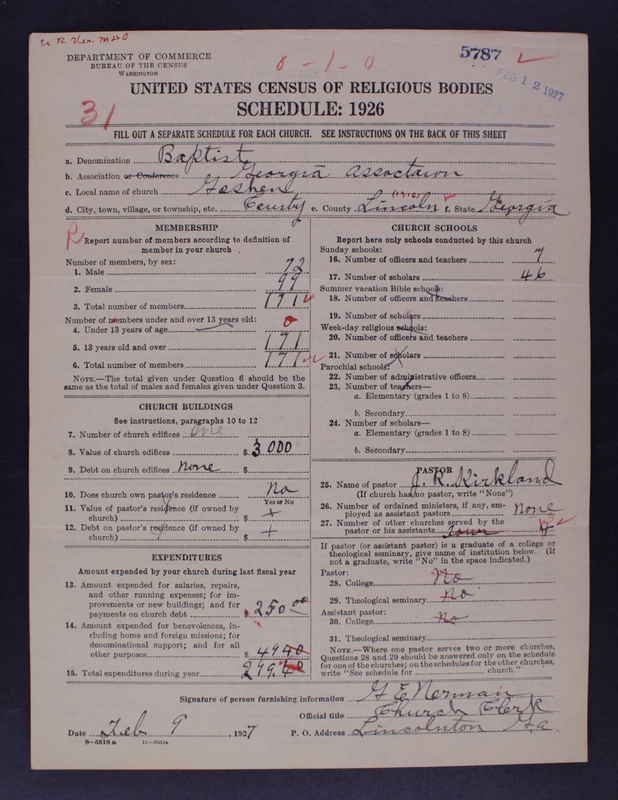 U R Ver. M&O
DEPARTMENT OF COMMERCE
BUREAU OF THE CENSUS
WASHINGTON
0-1-0
5787
FEB 12 1927
UNITED STATES CENSUS OF RELIGIOUS BODIES
SCHEDULE: 1926
31
FILL OUT A SEPARATE SCHEDULE FOR EACH CHURCH. SEE INSTRUCTIONS ON THE BACK OF THIS SHEET
a. Denomination Baptist
b. Association or Conference Georgia Assoctaion
c. Local name of church Goshen
d. City, town, village, or township, etc. County e. County Lincoln f. State Georgia
MEMBERSHIP
R
Report number of members according to definition of
member in your church
Number of members, by sex:
1. Male 72
2. Female 99
3. Total number of members 171
Number of members under and over 13 years old:
4. Under 13 years of age 0
5. 13 years old and over 171
6. Total number of members 171
NOTE.—The total given under Question 6 should be the
same as the total of males and females given under Question 3.
CHURCH BUILDINGS
See instructions, paragraphs 10 to 12
7. Number of church edifices one
8. Value of church edifices $ 3000
9. Debt on church edifices None $
10. Does church own pastor's residence No
Yes or No
11. Value of pastor's residence (if owned by
church) $ +
12. Debt on pastor's residence (if owned by
church) $ +
EXPENDITURES
Amount expended by your church during last fiscal year
13. Amount expended for salaries, repairs,
and other running expenses; for im-
provements or new buildings; and for
payments on church debt $ 250 00
14. Amount expended for benevolences, in-
cluding home and foreign missions; for
denominational support; and for all
other purposes $ 49 40
15. Total expenditures during year $ 299.40
CHURCH SCHOOLS
Report here only schools conducted by this church
Sunday schools:
16. Number of officers and teachers 7
17. Number of scholars 46
Summer vacation Bible schools:
18. Number of officers and teachers
19. Number of scholars
Week-day religious schools:
20. Number of officers and teachers
21. Number of scholars
Parochial schools:
22. Number of administrative officers
23. Number of teachers—
a. Elementary (grades 1 to 8)
b. Secondary
24. Number of scholars—
a. Elementary (grades 1 to 8)
b. Secondary
PASTOR
25. Name of pastor J. R. Kirkland
(If church has no pastor, write "None")
26. Number of ordained ministers, if any, em-
ployed as assistant pastors None
27. Number of other churches served by the
pastor or his assistants four 4
If pastor (or assistant pastor) is a graduate of a college or
theological seminary, give name of institution below. (If
not a graduate, write "No" in the space indicated.)
Pastor:
28. College No
29. Theological seminary No
Assistant pastor:
30. College No
31. Theological seminary
NOTE.—Where one pastor serves two or more churches,
Questions 28 and 29 should be answered only on the schedule
for one of the churches; on the schedules for the other churches,
write "See schedule for church."
Signature of person furnishing information G E Norman
Official title Church Clerk
Date Feb 9, 1927 P. O. Address Lincolnton Ga.
8-5618a